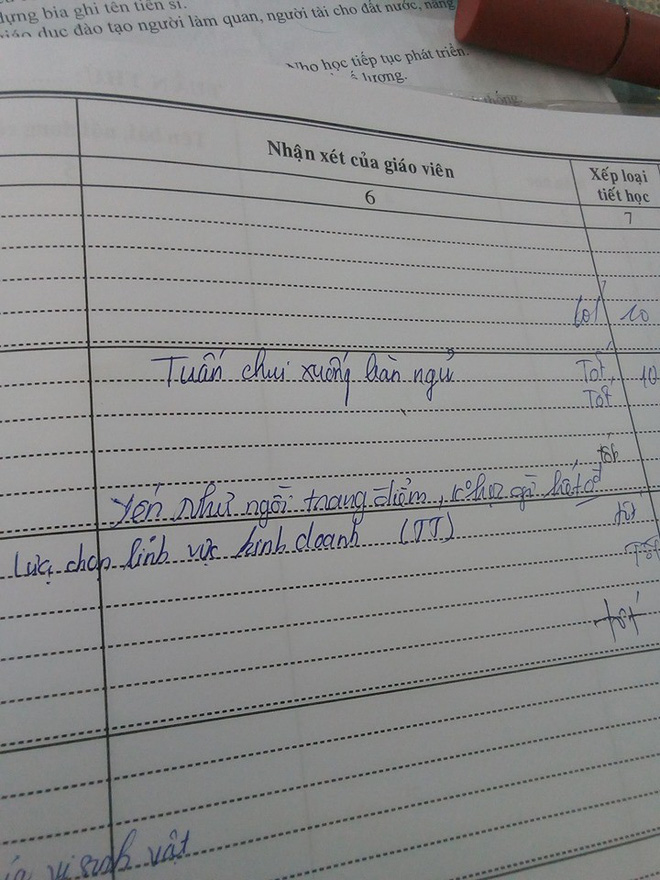 dựng bia ghi tên tiến sĩ.
giáo dục đào tạo người làm quan, người tài cho đất nước, nâng
Nho học tiếp tục phát triển.
lượng.
Nhận xét của giáo viên
Xếp loại
tiết học
6
7
tốt 10
Tuấn chui xuống bàn ngủ
Tốt, 10
Tốt
tốt
Yến như ngồi trang điểm, k học gì hết
tốt
Lựa chọn lĩnh vực kinh doanh (TT)
Tốt
tốt
vi sinh vật